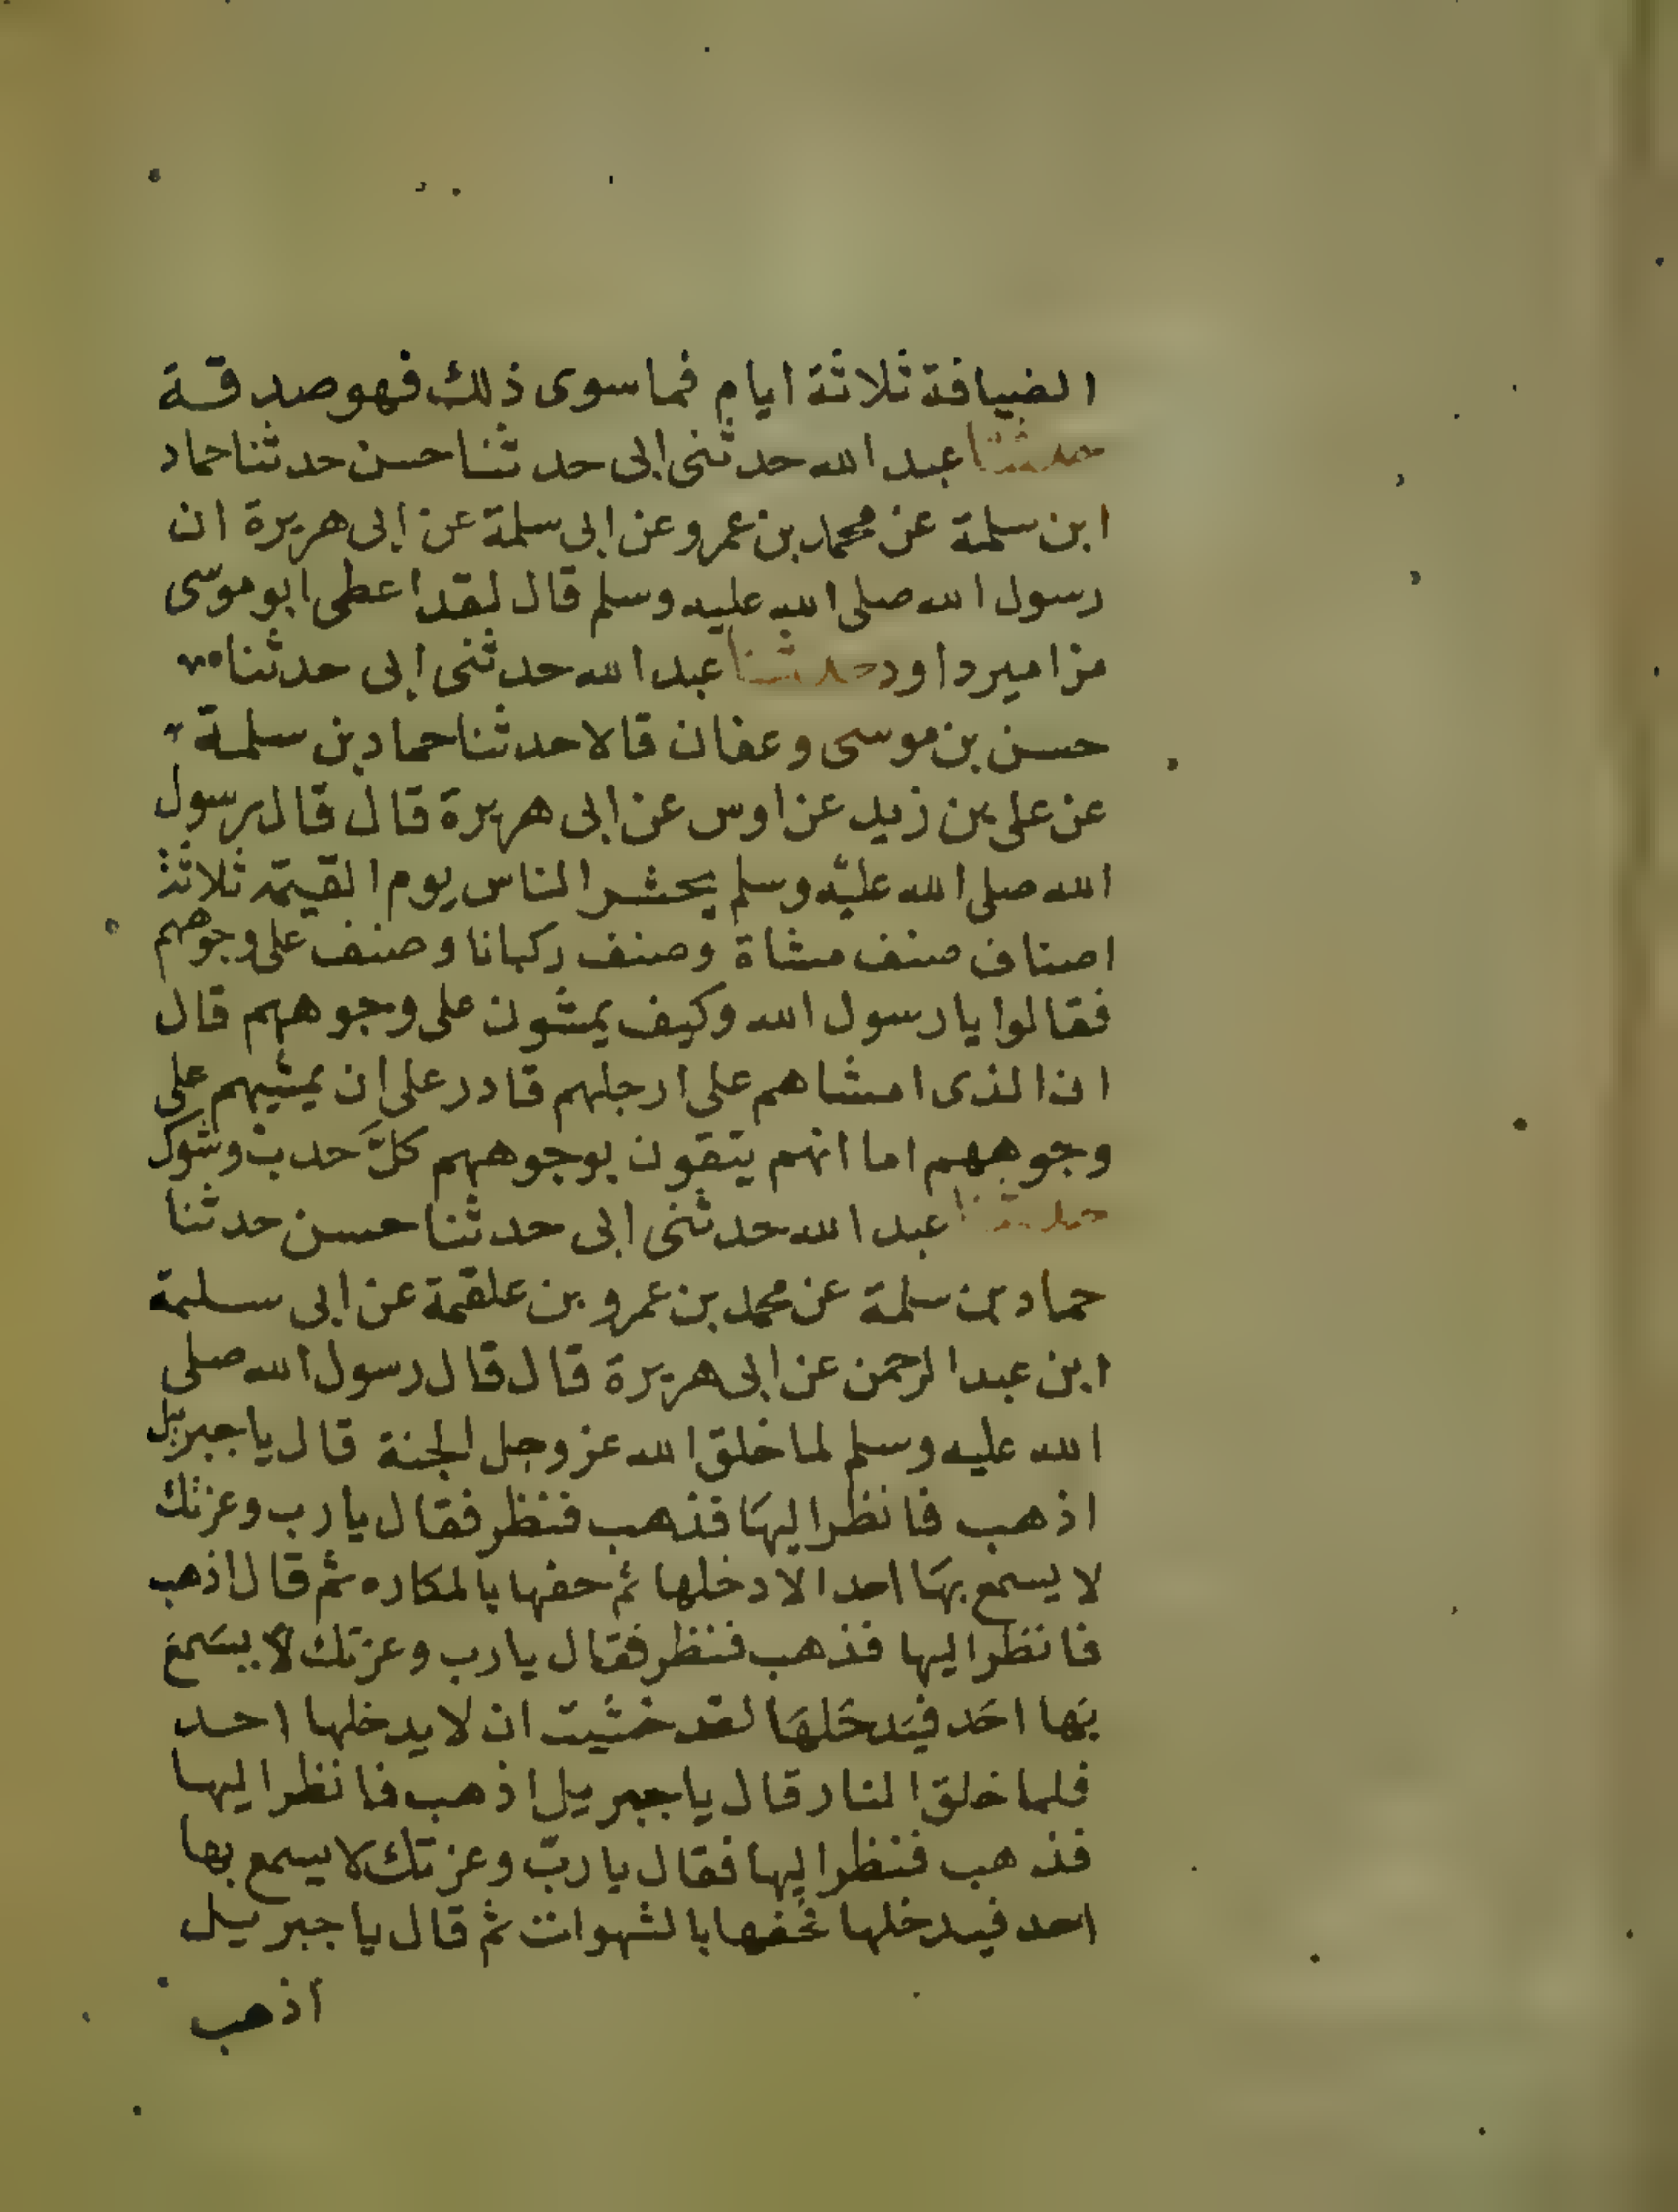 الضيافة ثلاثة ايام فما سوى ذلك فهو صدقة
حدثنا عبد الله حدثنى ابى حدثنا حسن حدثنا حماد
ابن سلمة عن محمد بن عمرو عن ابى سلمة عن ابى هريرة ان
رسول الله صلى الله عليه وسلم قال لقد اعطى ابو موسى
مزامير داود حدثنا عبد الله حدثنى ابى حدثنا
حسن بن موسى وعفان قالا حدثنا حماد بن سلمة
عن على بن زيد عن اوس عن ابى هريرة قال قال رسول
الله صلى الله عليه وسلم يحشر الناس يوم القيمة ثلاثة
اصناف صنف مشاة وصنف ركبانا وصنف على وجوههم
فقالوا يا رسول الله وكيف يمشون على وجوههم قال
ان الذى امشاهم على ارجلهم قادر على ان يمشيهم على
وجوههم اما انهم يتقون بوجوههم كلَّ حدب وشوك
حدثنا عبد الله حدثنى ابى حدثنا حسن حدثنا
حماد بن سلمة عن محمد بن عمرو بن علقمة عن ابى سلمة
ابن عبد الرحمن عن ابى هريرة قال قال رسول الله صلى
الله عليه وسلم لما خلق الله عز وجل الجنة قال يا جبريل
اذهب فانظر اليهَا فذهب فنظر فقال يا رب وعزتك
لا يسمع بهَا احد الا دخلها ثم حفها بالمكاره ثم قال اذهب
فانظر اليها فذهب فنظر فقال يا رب وعزتك لا يسَمع
بَها احَد فيَدخَلهَا لقد خشيت ان لا يدخلها احد
فلما خلق النار قال يا جبريل اذهب فانظر اليها
فذهب فنظر اليها فقال يا ربّ وعزتك لا يسمع بها
احد فيدخلها فحفها بالشهوات ثم قال يا جبريل
اذهب